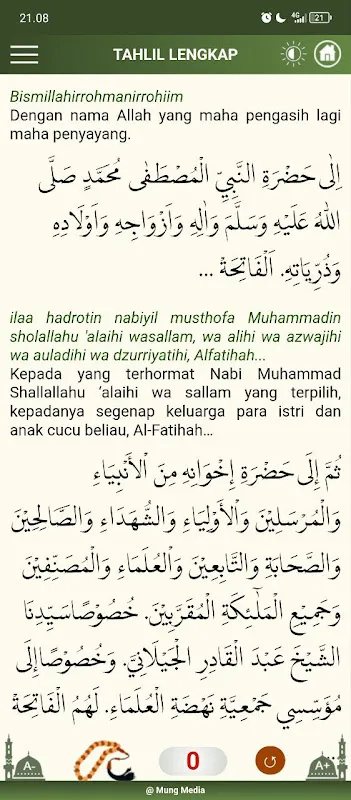 21.08
4G
21
TAHLIL LENGKAP
Bismillahirrohmanirrohiim
Dengan nama Allah yang maha pengasih lagi
maha penyayang.
اِلٰى حَضْرَةِ النَّبِيِّ الْمُصْطَفٰى مُحَمَّدٍ صَلَّى
اللهُ عَلَيْهِ وَسَلَّمَ وَاٰلِهِ وَاَزْوَاجِهِ وَاَوْلَادِهِ
وَذُرِّيَاتِهِ. اَلْفَاتِحَةْ ...
ilaa hadrotin nabiyil musthofa Muhammadin
sholallahu 'alaihi wasallam, wa alihi wa azwajihi
wa auladihi wa dzurriyatihi, Alfatihah...
Kepada yang terhormat Nabi Muhammad
Shallallahu 'alaihi wa sallam yang terpilih,
kepadanya segenap keluarga para istri dan
anak cucu beliau, Al-Fatihah...
ثُمَّ إِلَى حَضْرَةِ إِخْوَانِهِ مِنَ الْأَنْبِيَاءِ
وَالْمُرْسَلِيْنَ وَالْأَوْلِيَاءِ وَالشُّهَدَاءِ وَالصَّالِحِيْنَ
وَالصَّحَابَةِ وَالتَّابِعِيْنَ وَالْعُلَمَاءِ وَالْمُصَنِّفِيْنَ
وَجَمِيْعِ الْمَلٰٓئِكَةِ الْمُقَرَّبِيْنَ. خُصُوْصًاسَيِّدِنَا
الشَّيْخَ عَبْدَ الْقَادِرِ الْجَيْلَانِيّ. وَخُصُوْصًاإِلَى
مُؤَسِّسِي جَمْعِيَّة نَهْضَةِ الْعُلَمَاءِ. لَهُمُ الْفَاتِحَةْ
A-
0
A+
@ Mung Media